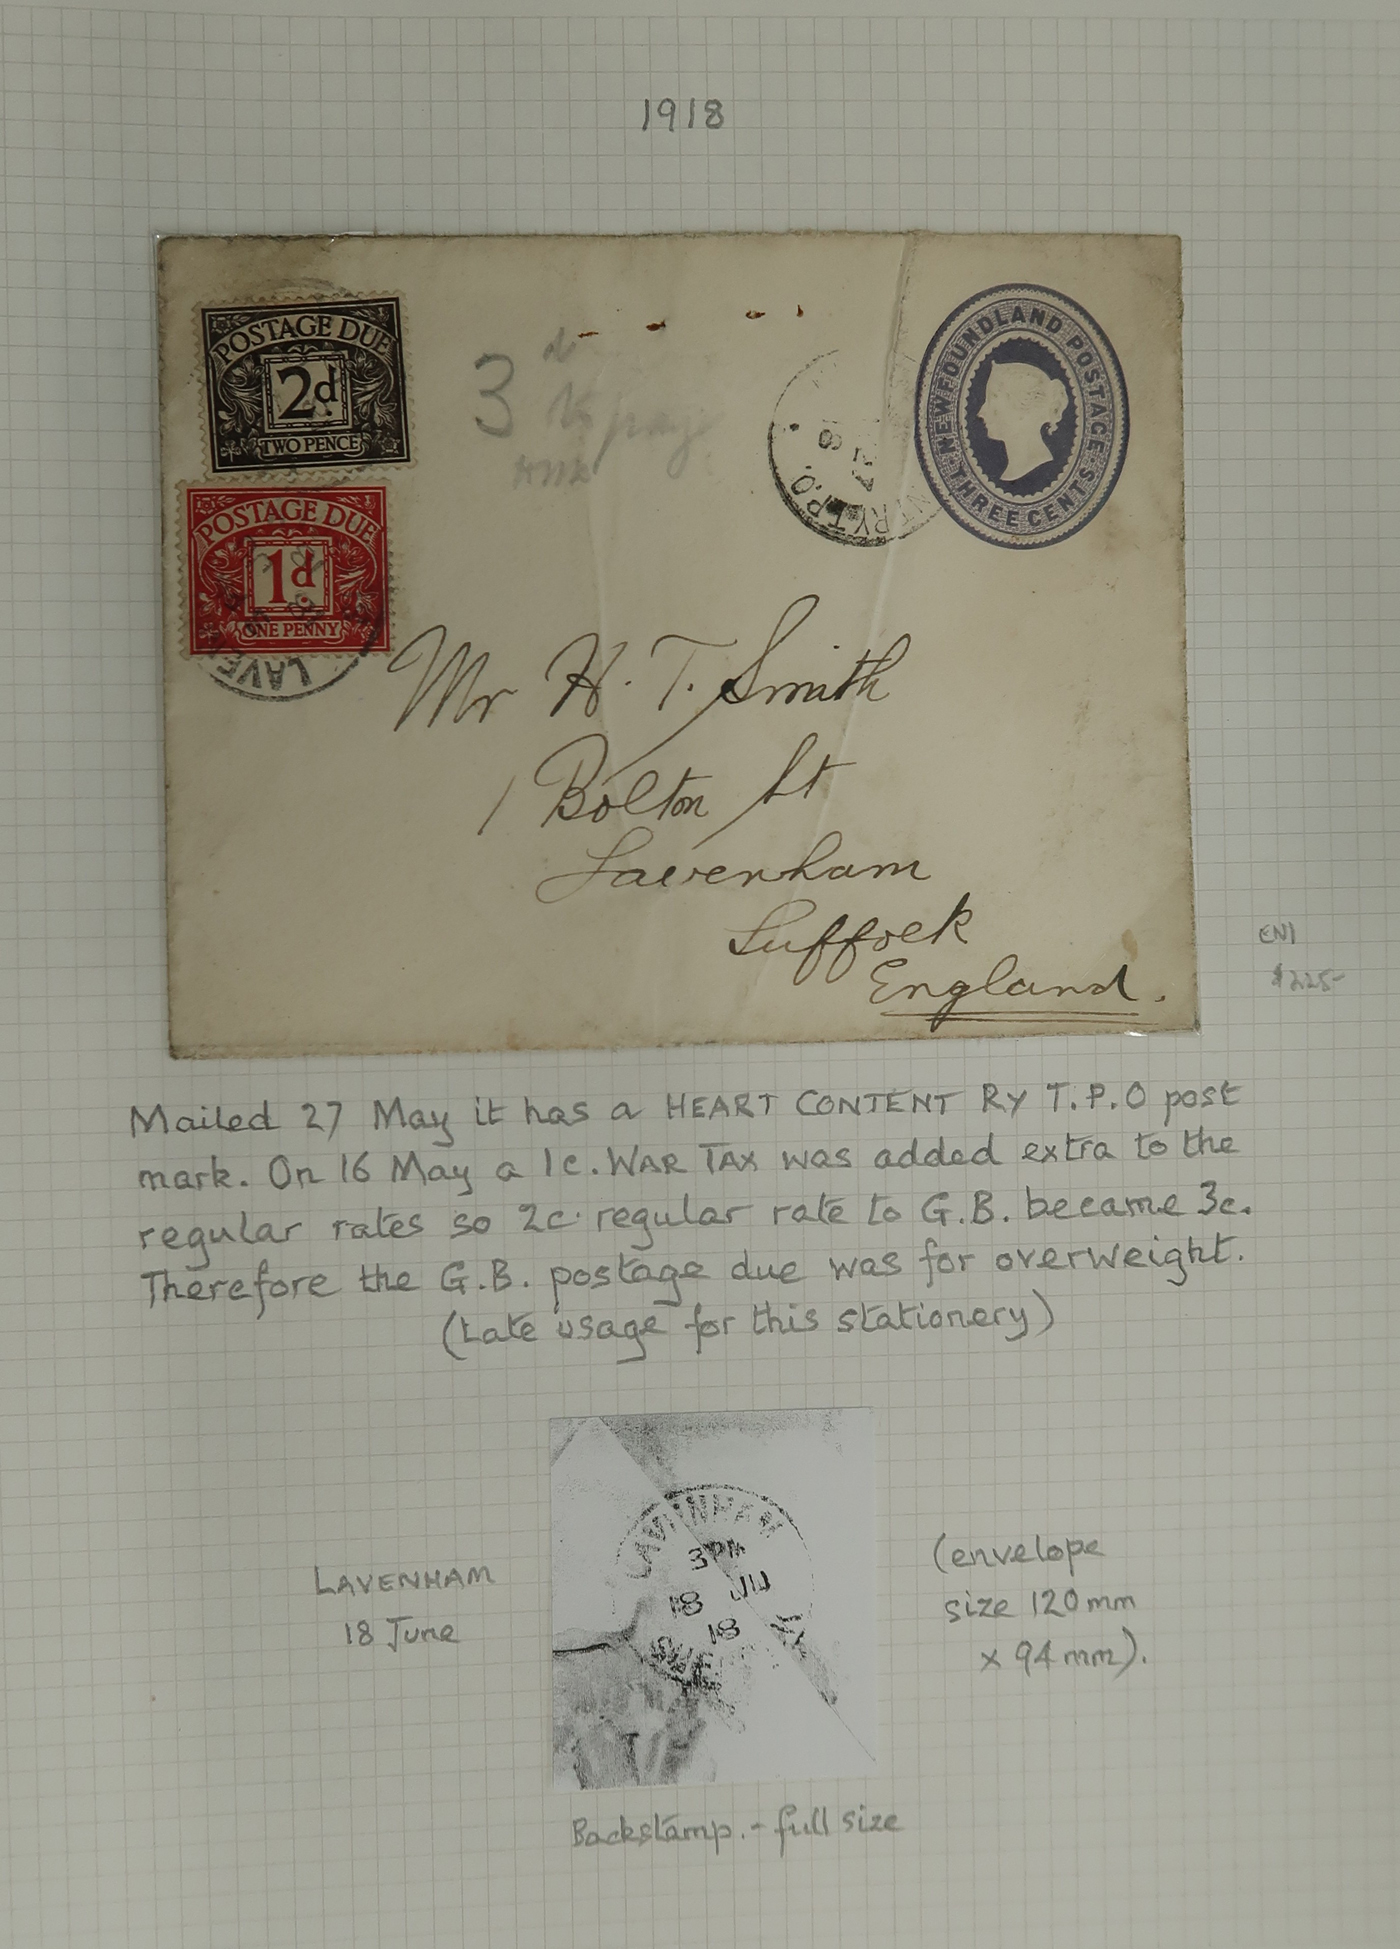 1918
POSTAGE DUE
2d
TWO PENCE
POSTAGE DUE
1d
ONE PENNY
LAVE
3d
to pay
NTRY T.P.O.
27
NEWFOUNDLAND POSTAGE
THREE CENTS
Mr H. T. Smith
1 Bolton St
Lavenham
Suffolk
England.
EN1
$225-
Mailed 27 May it has a HEART CONTENT RY T.P.O post
mark. On 16 May a 1c. WAR TAX was added extra to the
regular rates so 2c. regular rate to G.B. became 3c.
Therefore the G.B. postage due was for overweight.
(Late usage for this stationery)
LAVENHAM
18 June
LAVENHAM
3 PM
18 JU
18
(envelope
size 120mm
x 94mm).
Backstamp. - full size